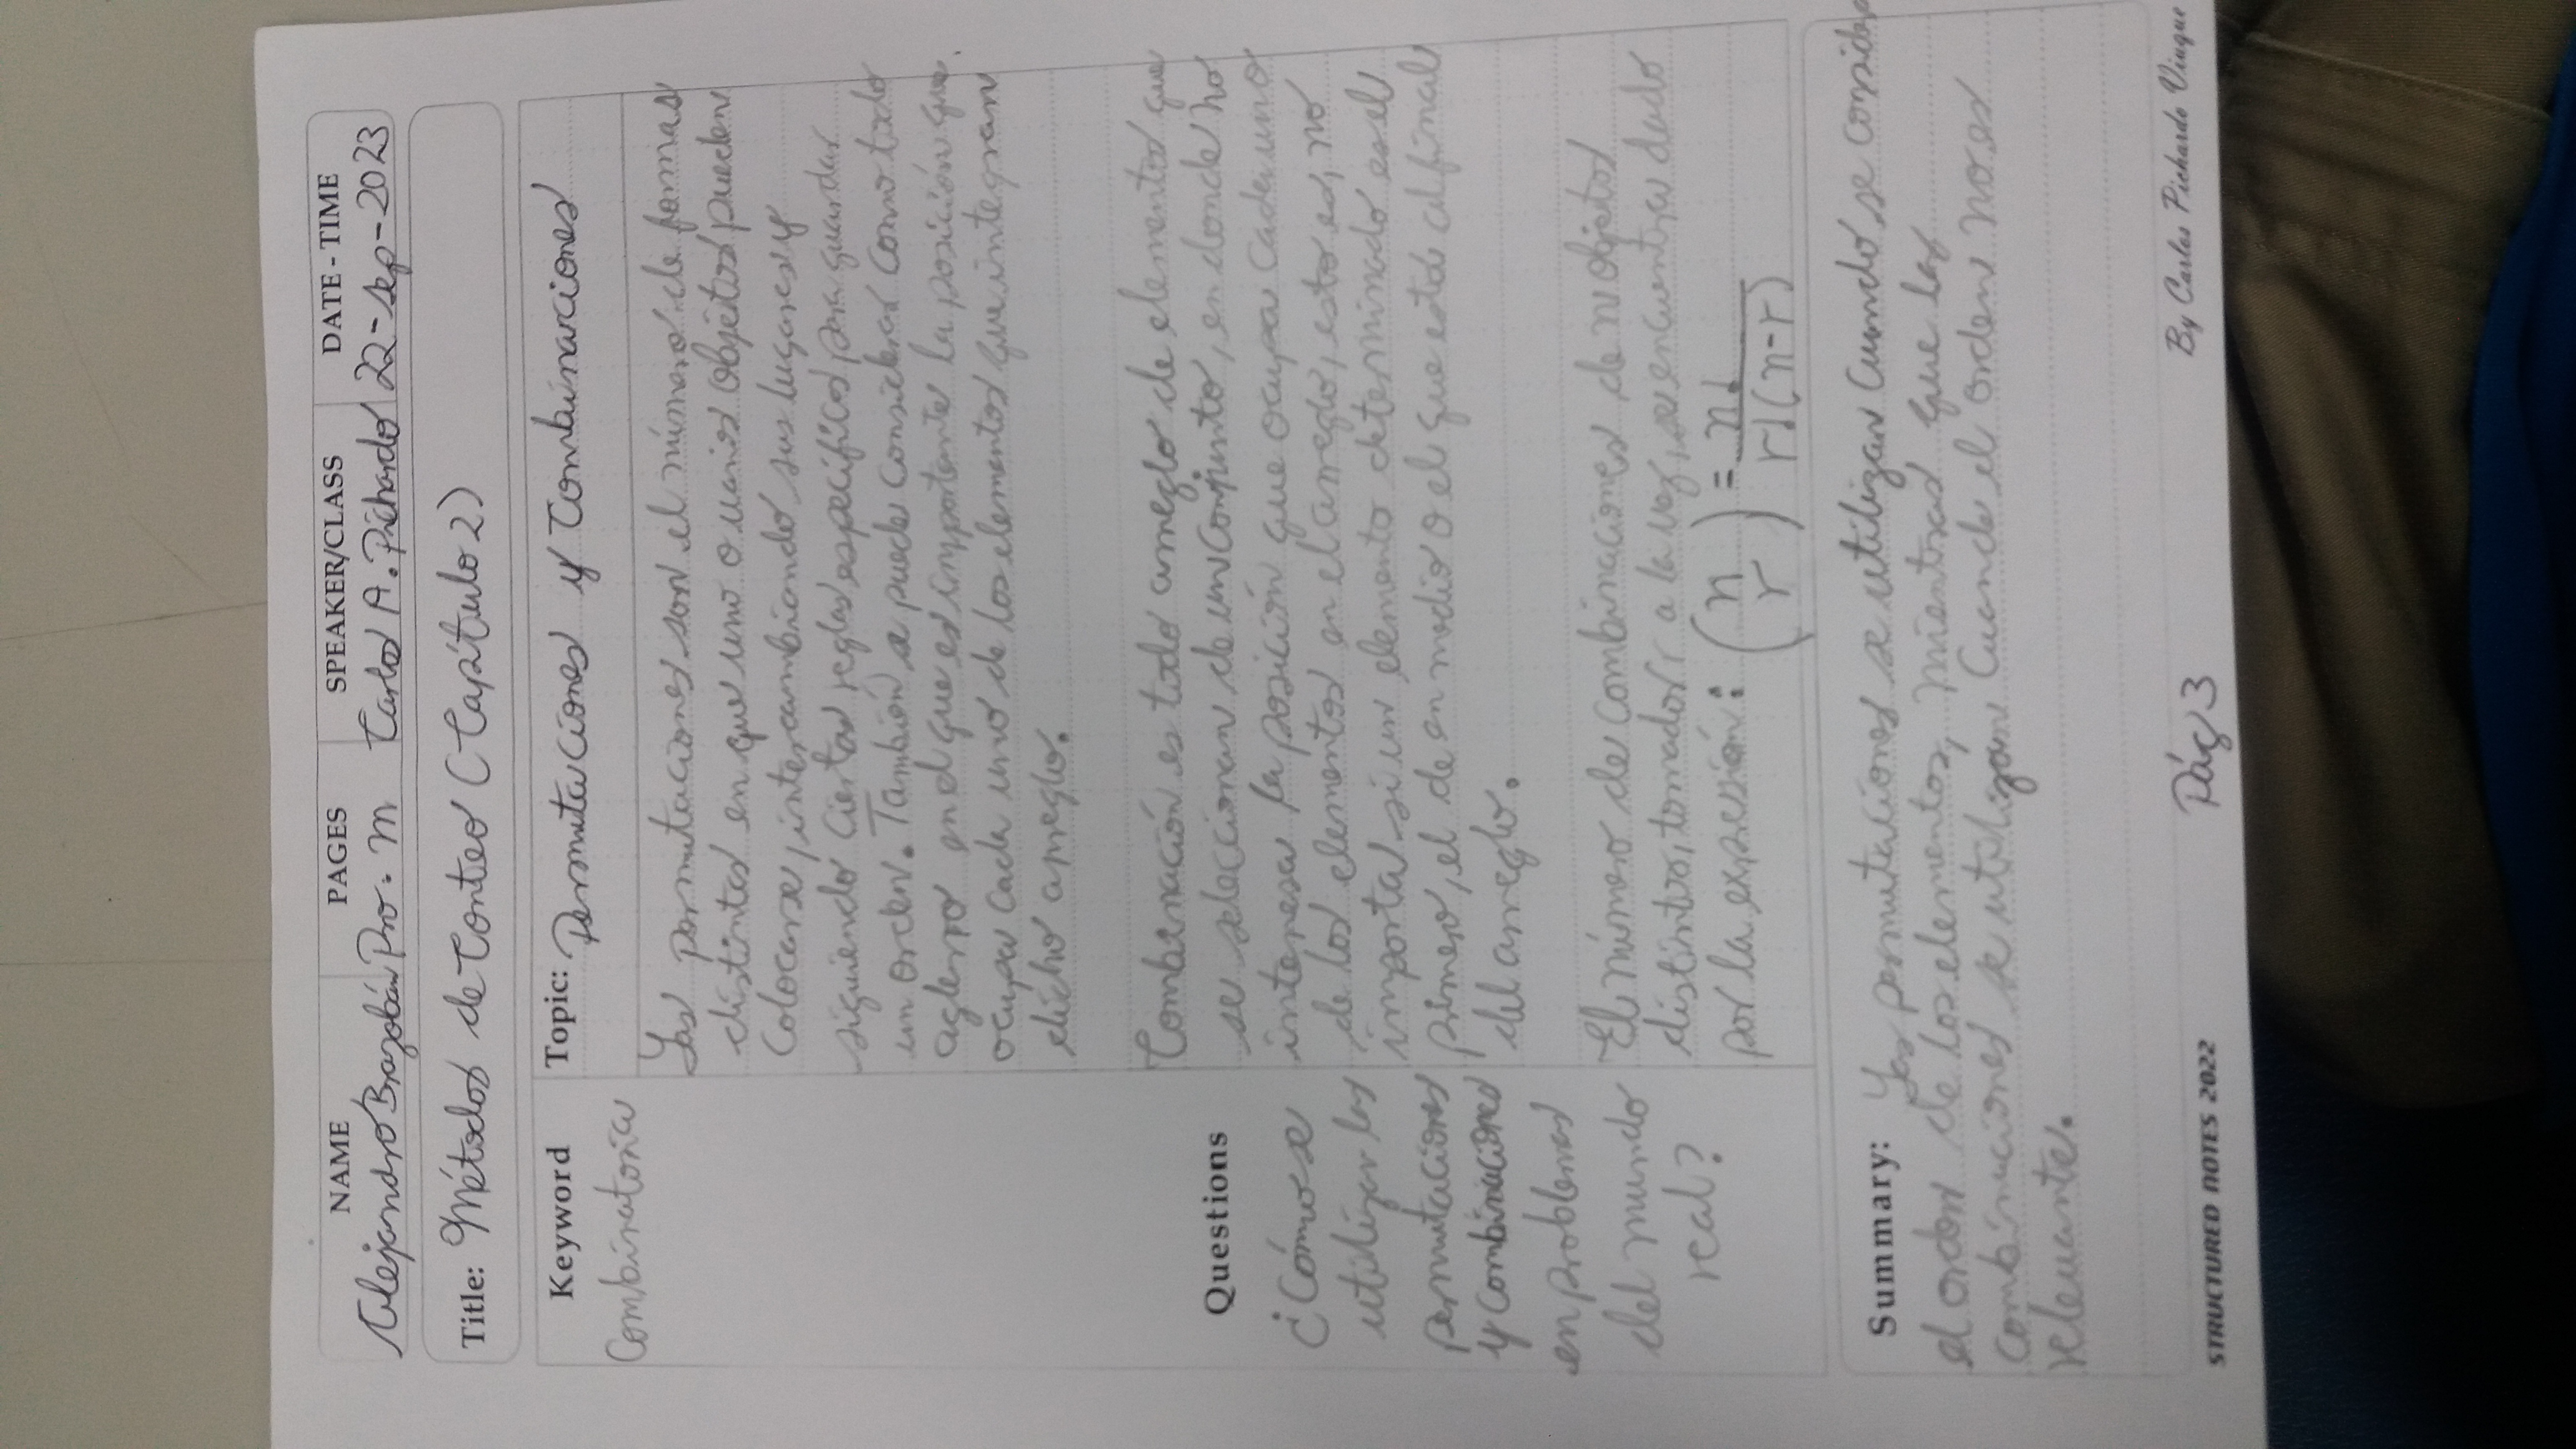 NAME PAGES SPEAKER/CLASS DATE - TIME
Alejandro Brazobán Pro. M Carlos A. Pichardo 22-sep-2023
Title: Métodos de Conteo (Capítulo 2)
Keyword
Combinatoria
Topic: Permutaciones y Combinaciones
Las permutaciones son el número de formas
distintas en que uno o varios objetos pueden
colocarse, intercambiando sus lugares y
siguiendo ciertas reglas específicas para guardar
un orden. También se puede considerar como todo
en el que es importante la posición que
ocupa cada uno de los elementos que integran
dicho arreglo.
Combinación es todo arreglo de elementos que
se seleccionan de un conjunto, en donde no
interesa la posición que ocupa cada uno
de los elementos en el arreglo, esto es, no
importa si un elemento determinado es el
primero, el de en medio o el que está al final
del arreglo.
El número de combinaciones de n objetos
distintos, tomados r a la vez, se encuentra dado
por la expresión: (n r) = n! / r!(n-r)
Questions
¿Cómo se
utilizan las
permutaciones
y combinaciones
en problemas
del mundo
real?
Summary: Las permutaciones se utilizan cuando se conside
el orden de los elementos, mientras que las
combinaciones se utilizan cuando el orden no es
relevante.
STRUCTURED NOTES 2022
Pág 3
By Carlos Pichardo Viuque